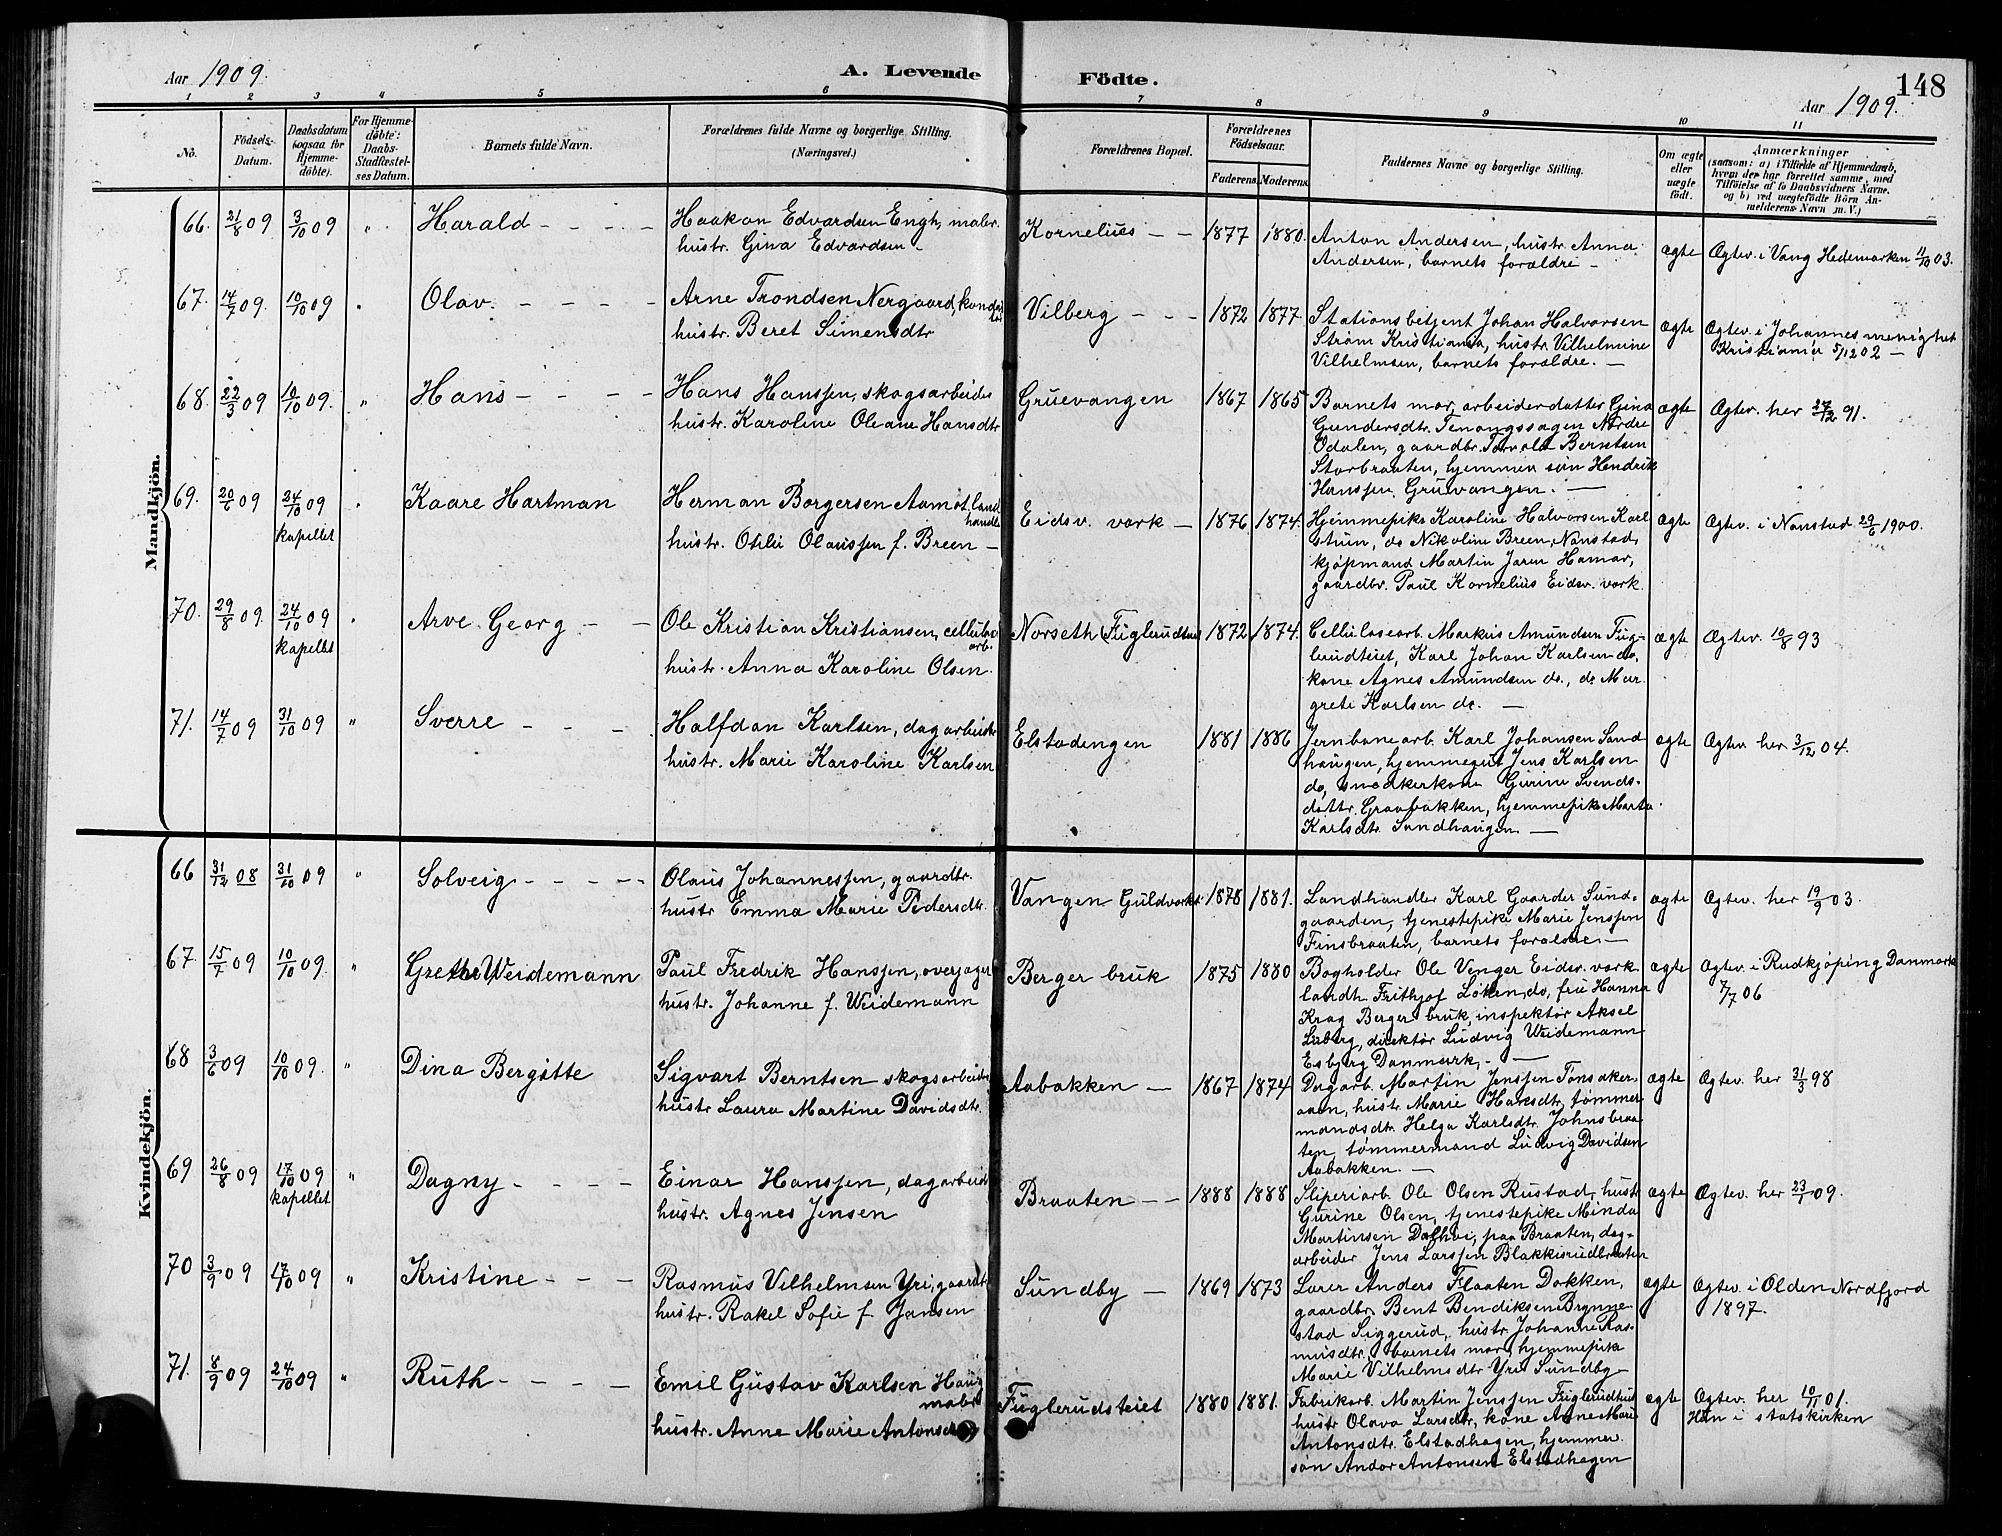 Aar 1909.
A. Levende
Födte.
148
Aar 1909.
1 2 3 4 5 6 7 8 9 10 11
No.
Födsels-
Datum.
Daabsdatum
(ogsaa for
Hjemme-
döbte).
For Hjemme-
döbte:
Daabs-
Stadfæstel-
ses Datum.
Barnets fulde Navn.
Forældrenes fulde Navne og borgerlige Stilling.
(Næringsvei.)
Forældrenes Bopæl.
Forældrenes
Födselsaar.
Faderens. Moderens.
Faddernes Navne og borgerlige Stilling.
Om ægte
eller
uægte
födt.
Anmærkninger
(saasom: a) i Tilfælde af Hjemmedaab,
hvem der har forrettet samme, med
Tilföielse af to Daabsvidners Navne.
og b) ved uægtefödte Börn An-
melderens Navn m. V.)
Mandkjön.
66. 21/8 09 3/10 09 " Harald - - - -
Haakon Edvardsen Engh, maler.
hustr. Gina Edvardsen -
Kornelius - - 1877 1880.
Anton Andersen, hustr. Anna
Andersen, barnets forældre -
ægte Ægtev. i Vang Hedemarken 11/10 03.
67. 14/7 09. 10/10 09 " Olav. - - - -
Arne Trondsen Nergaard,
hustr. Beret Simensdtr
Vilberg - - - 1872 1877
Stationsbetjent Johan Halvorsen
Strøm Kristiania, hustr. Vilhelmine
Vilhelmsen, barnets forældre. -
ægte Ægtev. i Johannes menighet
Kristiania 5/12 02 -
68. 22/3 09 10/10 09. " Hans - - - -
Hans Hanssen, skogsarbeider
hustr. Karoline Oleane Hansdtr
Gruevangen 1867 1865
Barnets mor, arbeiderdatter Gina
Gundersdtr. Nordre
Odalen, gaardbr. Berntsen
Storbraaten, hjemmev. søn Hendrik
Hanssen. Gruevangen. -
ægte Ægtev. her 27/12 91.
69. 20/6 09 24/10 09 " Kaare Hartman
kapellet
Herman Borgersen Aamot, land
handler
hustr. Otilie Olaussen f. Breen -
Eidsv. værk - 1876 1874.
Hjemmepike Karoline Halvorsen Karl
stuen, do Nikoline Breen, Nanstad,
kjøpmand Martin Jaren Hamar,
gaardbr. Paul Kornelius Eidsv. værk
ægte Ægtev. i Nanstad 29/6 1900.
70. 29/8 09. 24/10 09 " Arve Georg - -
kapellet
Ole Kristian Kristiansen, cellulose
arb.
hustr. Anna Karoline Olsen.
Norseth (Fuglerudteiet 1872 1874.
Cellulosearb. Markus Amundsen Fug-
lerudteiet, Karl Johan Karlsen do,
kone Agnes Amundsen do., do Mar
grete Karlsen do. -
ægte Ægtev. 10/8 93
71. 14/7 09 31/10 09 " Sverre - - -
Halfdan Karlsen, dagarbeider
hustr. Marie Karoline Karlsen
Elstadengen 1881 1886
Jernbanearb. Karl Johansen Sand
haugen, hjemmegut Jens Karlsen
do, snedkerkone Gurine Svends-
dattr. Graabakken, hjemmepike Marta
Karlsdtr. Sandhaugen -
ægte Ægtev. her 3/12 04.
Kvindekjön.
66 31/12 08 31/10 09 " Solveig - - - -
Olaus Johannessen, gaardbr.
hustr Emma Marie Pedersdtr.
Vangen Guldverket 1878 1881.
Landhandler Karl Gaarder Sund-
gaarden, tjenestepike Marie Jenssen
Finsbraaten, barnets forældre. -
ægte Ægtev. her 19/9 03.
67 15/7 09 10/10 09. " Grethe Weidemann
Paul Fredrik Hanssen, overjæger
hustr. Johanne f. Weidemann
Berger bruk 1875 1880
Bogholder Ole Venger Eidsv. værk
landh. Frithjof Løken, do, frú Hanna
Krag Berger bruk, inspektør Aksel
direktør Ludvig Weidemann
Esbjerg Danmark, -
ægte Ægtev. i Rudkjøping Danmark
7/7 06
68 3/6 09 10/10 09. " Dina Bergitte
Sigvart Berntsen skogsarbeider
hustr Laura Martine Davidsdtr.
Aabakken - 1867 1874
Dagarb. Martin Jenssen Tønsaker-
aaen, hustr. Marie Hansdtr, tømmer
mandsdt. Helga Karlsdtr. Johnsbraa
ten, tømmermand Ludvig Davidsen
Aabakken. -
ægte Ægtev. her 31/3 98
69 26/8 09 17/10 09 " Dagny - - - -
kapellet
Einar Hanssen, dagarbeider
hustr. Agnes Jensen
Braaten - - 1888 1888
Sliperiarb. Ole Olsen Rustad, hustr
Gurine Olsen, tjenestepike Minda
Martinsen Dalhvi, paa Braaten, dag-
arbeider Jens Larssen Blakkisrudbraaten
ægte Ægtev. her 23/1 09.
70 3/9 09 17/10 09 " Kristine - - -
Rasmus Vilhelmsen Yri, gaardbr
hustr. Rakel Sofie f. Jansen
Sundby - 1869 1873
Lærer Anders Flaaten Dokken,
gaardbr. Bent Bendiksen Brynne-
stad Siggerud, hustr. Johanne Ras-
musdtr. barnets mor, hjemmepike
Marie Vilhelmsdtr Yri Sundby -
ægte Ægtev. i Olden Nordfjord
1897.
71. 8/9 09 24/10 09 " Ruth - - - -
Emil Gustav Karlsen Haug
maler
hustr. Anne Marie Antonsdtr
Fuglerudsteiet 1880 1881.
Fabrikarb. Martin Jenssen Fuglerudteiet
hustr Olava Larsdtr, kone Anne Marie
Antonsdtr. Elstadhagen, hjemmev.
søn Andor Antonsen Elstadhagen
ægte Ægtev. her 10/11 01.
Hun i statskirken